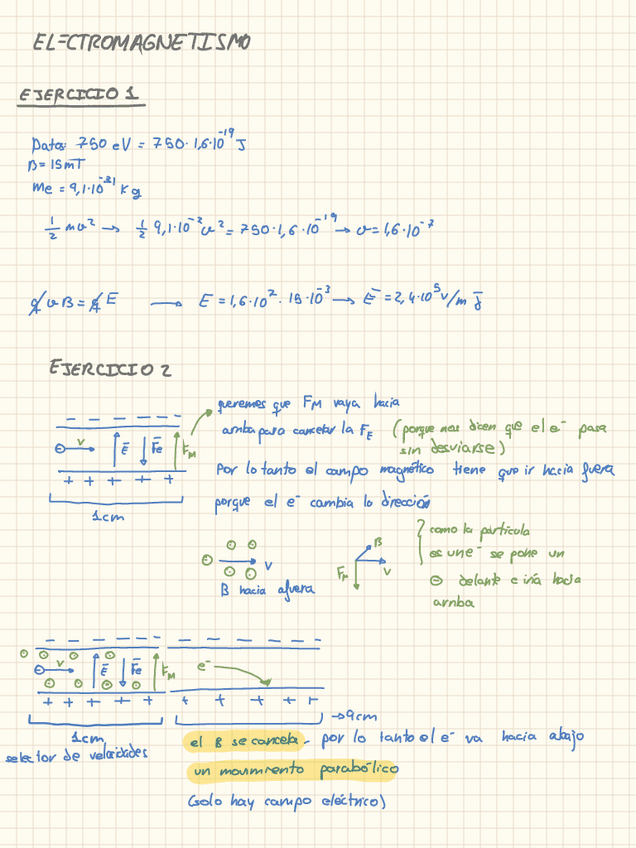 ELECTROMAGNETISMO
EJERCICIO 1
Datos: 750 eV = 750·1,6·10⁻¹⁹ J
B = 15 mT
me = 9,1·10⁻³¹ kg
½ mv² → ½ 9,1·10⁻³ v² = 750·1,6·10⁻¹⁹ → v = 1,6·10⁻⁷
q v B = q E → E = 1,6·10⁷ · 15·10⁻³ → E = 2,4·10⁵ v/m j
EJERCICIO 2
queremos que FM vaya hacia
arriba para cancelar la FE (porque nos dicen que el e⁻ pasa
sin desviarse)
Por lo tanto el campo magnético tiene que ir hacia fuera
porque el e⁻ cambia la dirección
− − − − − −
v E Fe FM
+ + + + +
1cm
v
B hacia afuera
B
FM v
como la partícula
es un e⁻ se pone un
⊖ delante e iría hacia
arriba
− − − − − − − − − − − −
v E Fe FM e⁻
+ + + + + + + + + +
1cm → 9cm
selector de velocidades
el B se cancela, por lo tanto el e⁻ va hacia abajo
un movimiento parabólico
(solo hay campo eléctrico)